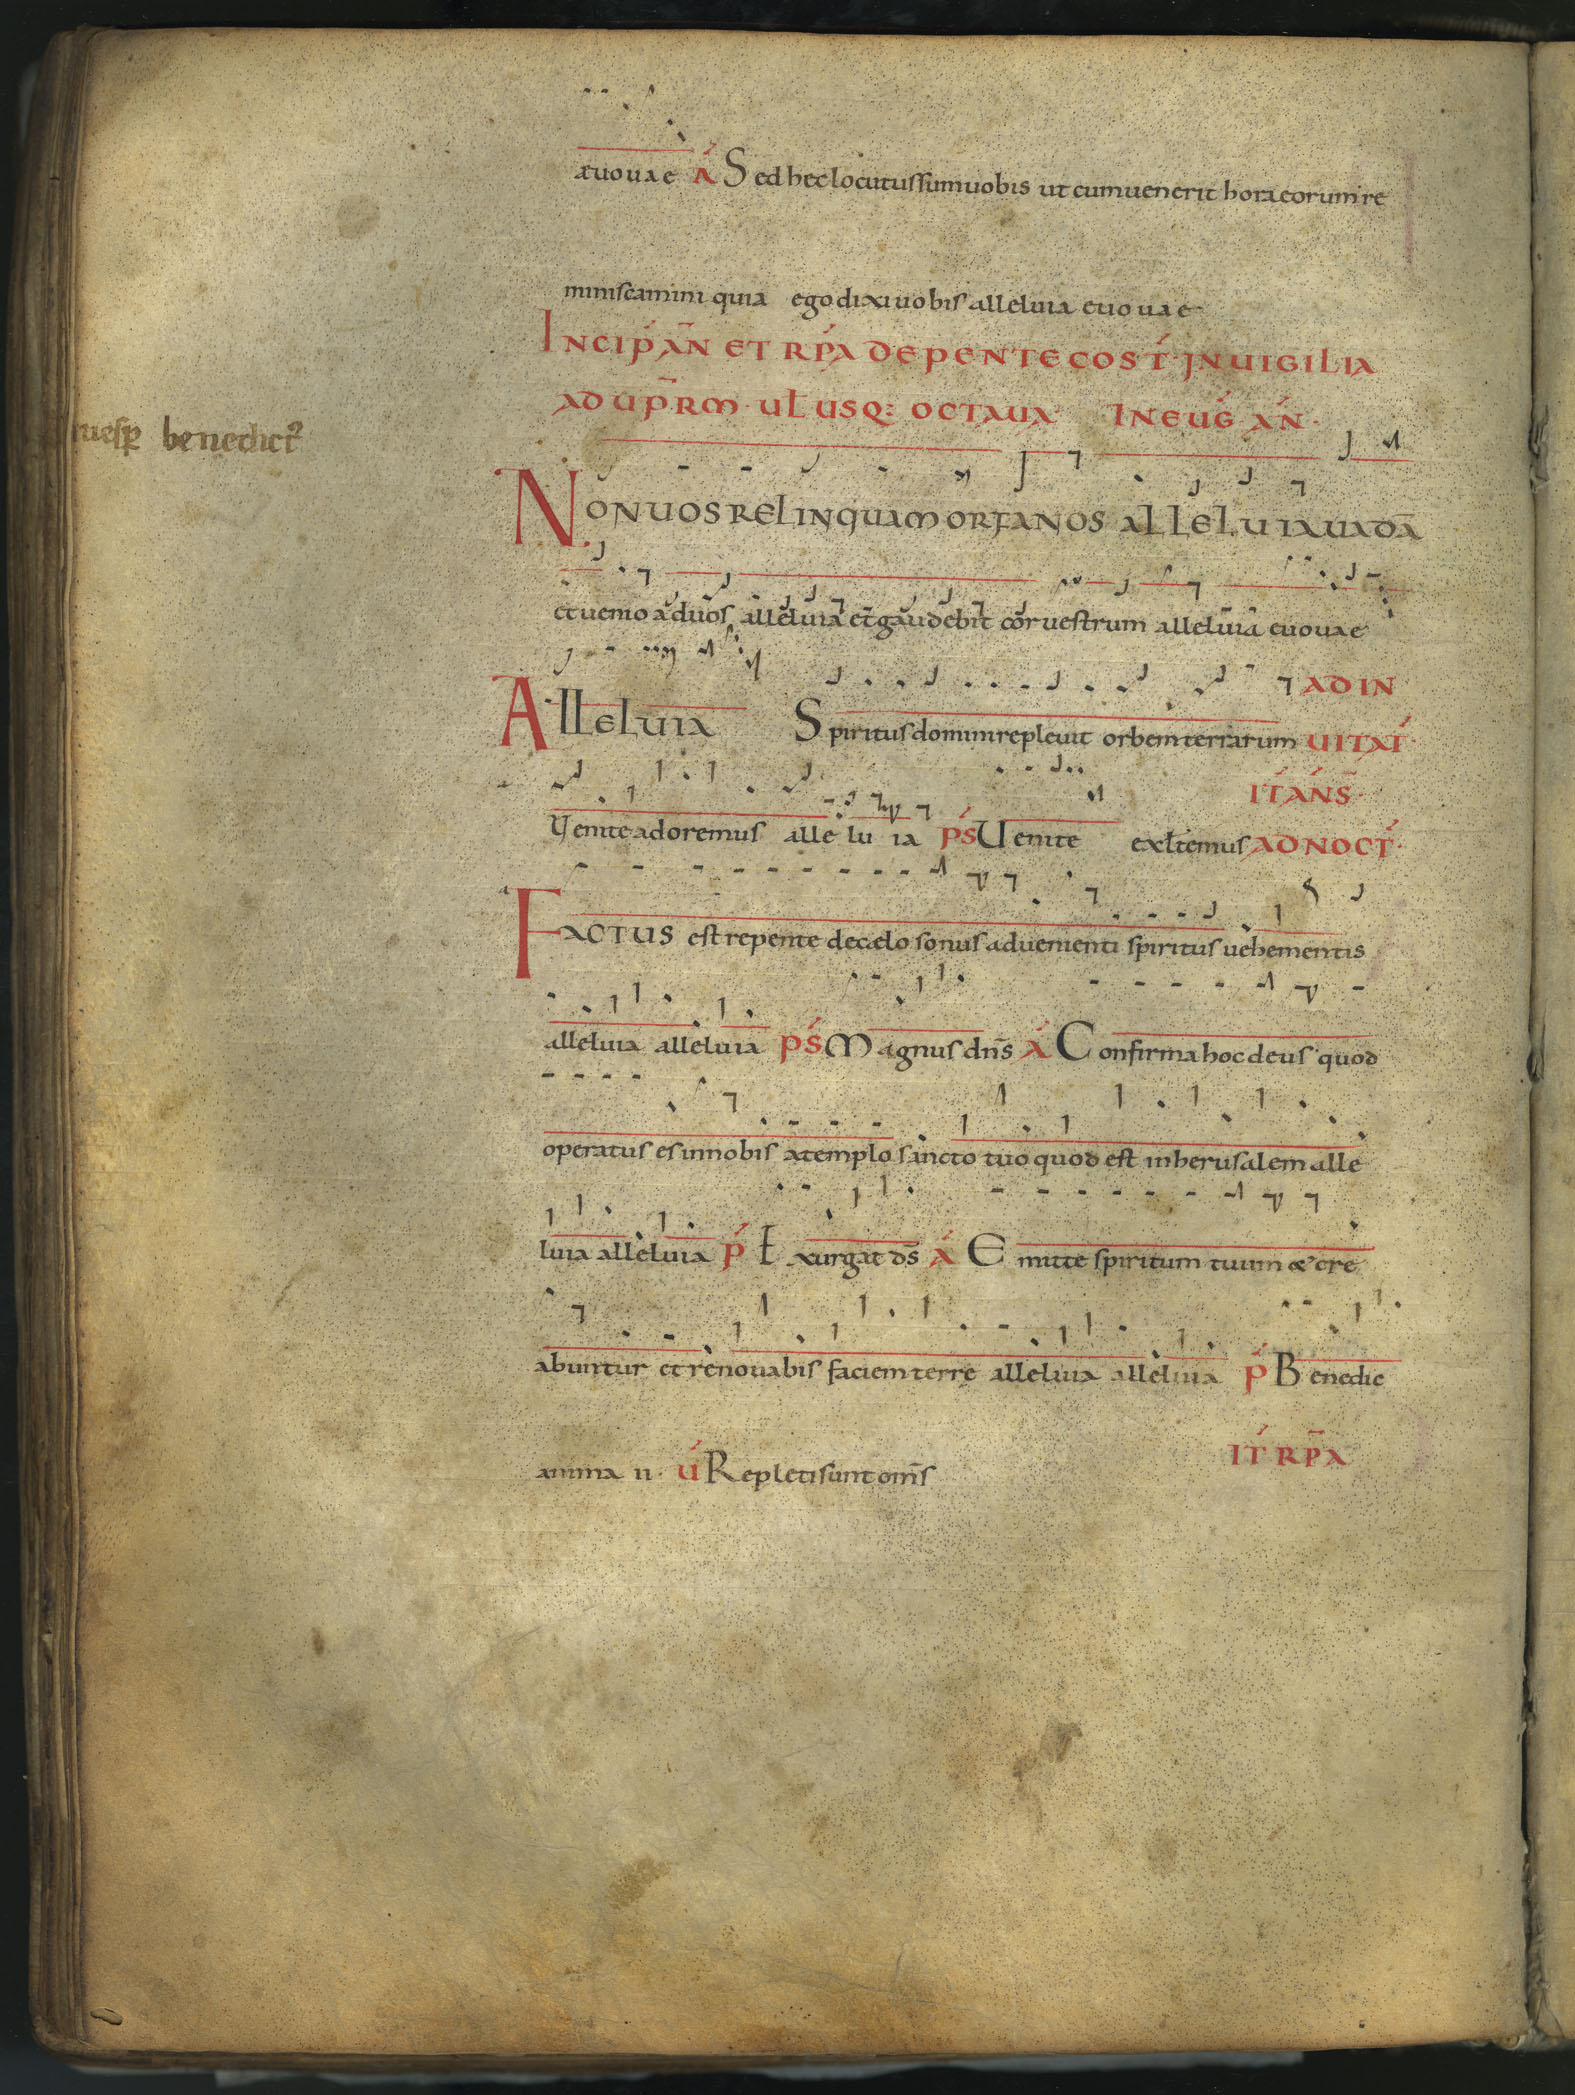 aeuouae Á Sed hec locutus sum uobis ut cum uenerit hora eorum re
miniscamini quia ego dixi uobis alleluia euouae
INCIṔ AÑ ET RṔA DE PENTECOST́ IN UIGILIA
AD UP̄RM UƚUSQ: OCTAUA IN EUǴ AŃ
uesp̄ benedict᷒
NON UOS RELINQUAM ORFANOS ALLELUIA UADĀ
et uenio ad uos alleluia et gaudebit cor uestrum alleluia euouae
ALLELUIA Spiritus domini repleuit orbem terrarum AD IN
UITAT́
IT́ AŃS̄
Uenite adoremus alleluia PŚ Uenite exƚtemus AD NOCT́
FACTUS est repente de caelo sonus aduenienti spiritus uehementis
alleluia alleluia PŚ Magnus dn̄s Á Confirma hoc deus quod
operatus es in nobis a templo sancto tuo quod est in herusalem alle
luia alleluia Ṕ Exurgat ds̄ Á Emitte spiritum tuum & cre
abuntur et renouabis faciem terrę alleluia alleluia Ṕ Benedic
anima ii. Ú Repleti sunt om̄s IT́ RP̄A